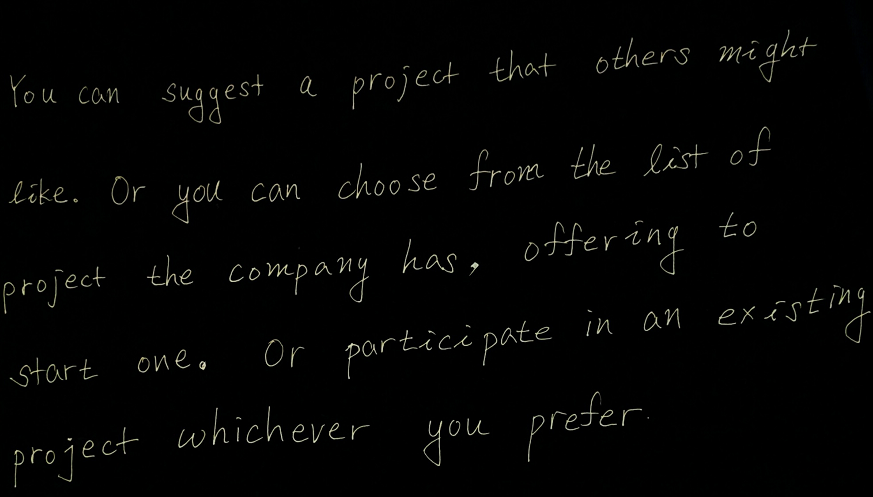 You can suggest a project that others might
like. Or you can choose from the list of
project the company has, offering to
start one. Or participate in an existing
project whichever you prefer.